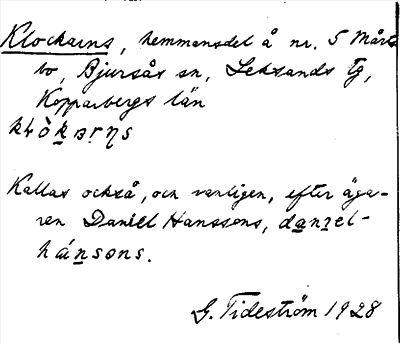 Klockarns, hemmansdel å nr. 5 Mårts
bo, Bjursås sn, Leksands tg,
Kopparbergs län
Kallas också, och vanligen, efter äga-
ren Daniel Hanssons, danıel-
hánsons.
G. Tideström 1928